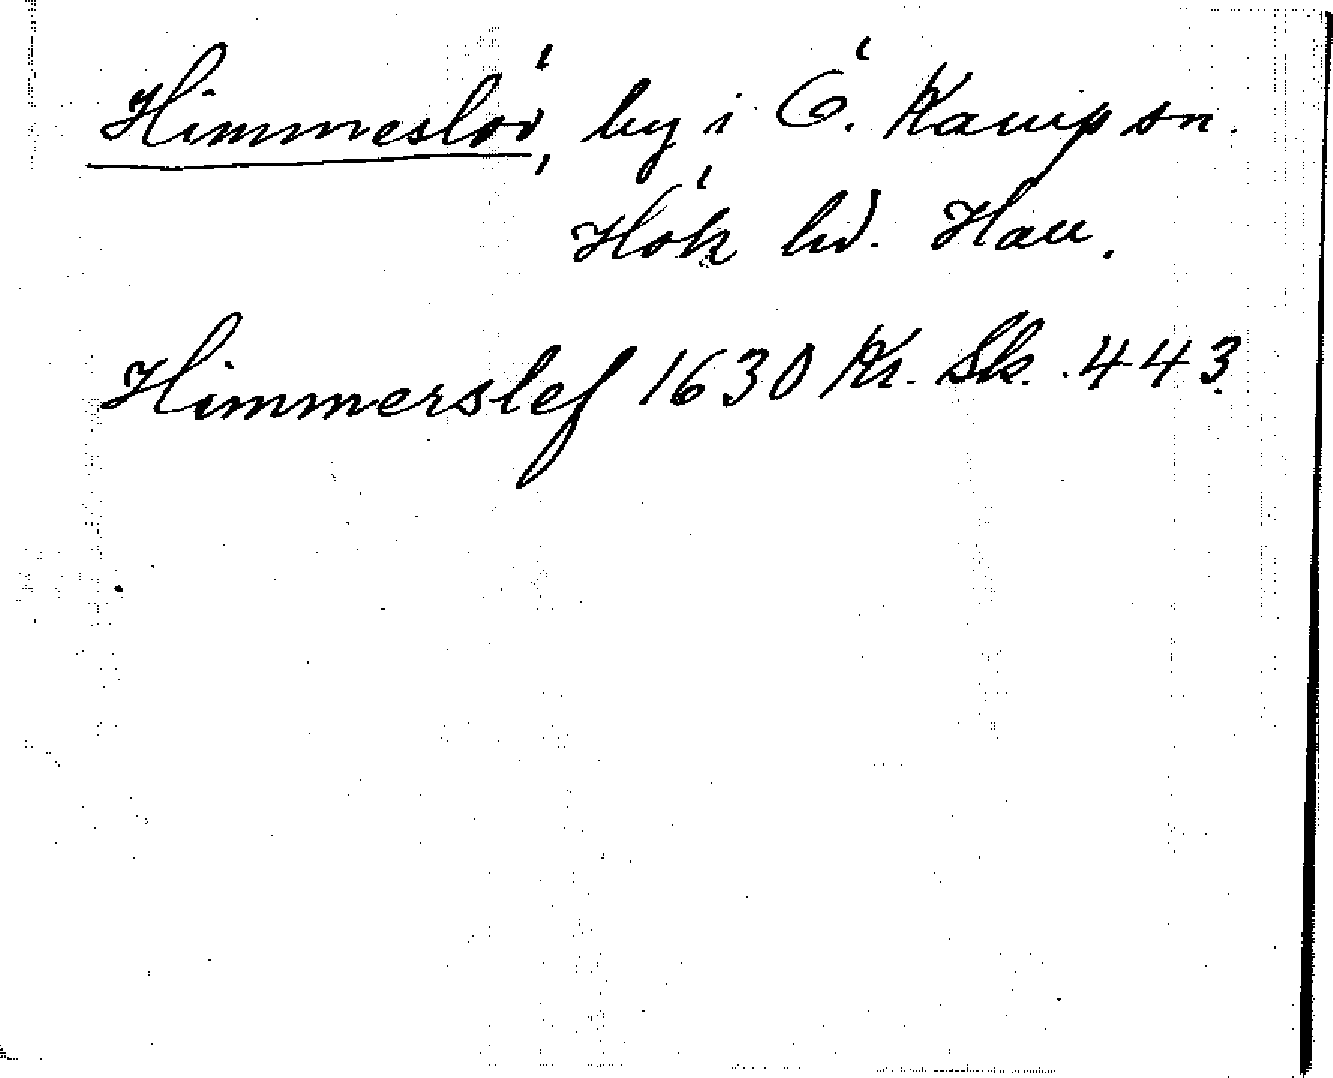 Himmeslöv, by i Ö. Karup sn.
Höks hd. Hall.
Himmerslef 1630 Kr. Sk. 443